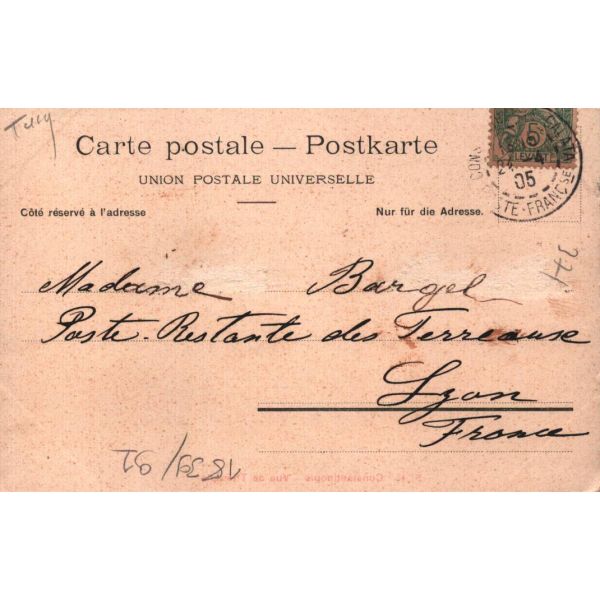 Carte postale — Postkarte
UNION POSTALE UNIVERSELLE
Côté réservé à l'adresse
Nur für die Adresse.
5
LEVANT
CONS GALATA
4
05
STE-FRANÇSE
371
Madame Bargel
Poste-Restante des Terreaux
Lyon
France
1839/92
Constantinople - Vue de